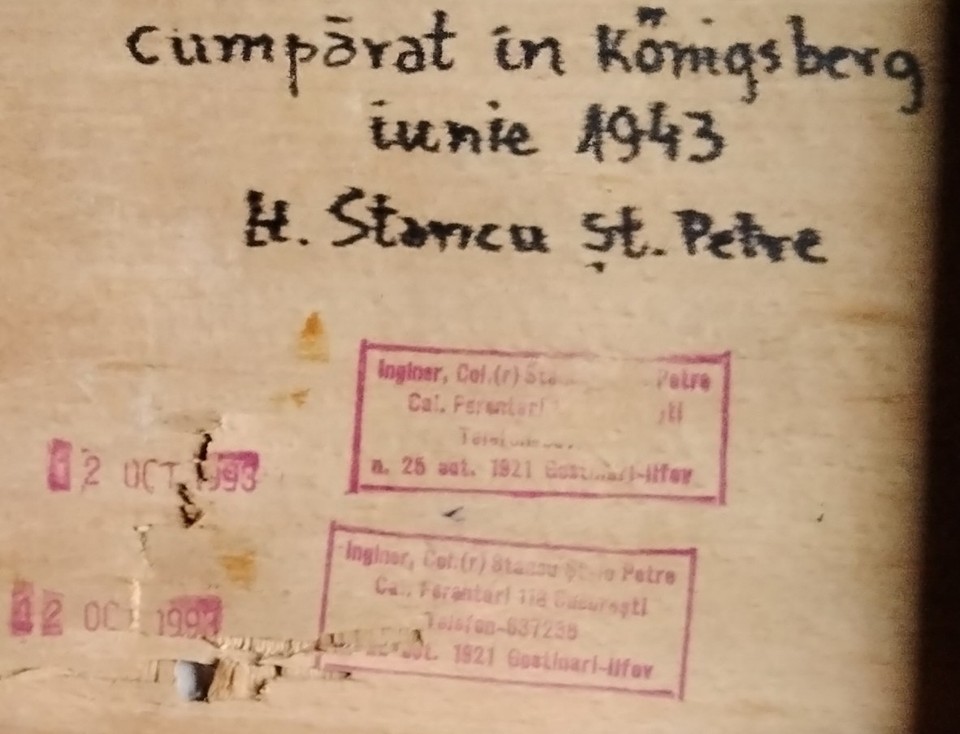 Cumpărat in Königsberg
iunie 1943
H. Stancu Șt. Petre
Inginer, Col.(r) Petre
Cal. Ferentari
n. 25 oct. 1921 Gostinari-Ilfov
12 OCT 1993
Inginer, Col.(r) Stancu Petre
Cal. Ferentari 118 București
Telefon-837238
1921 Gostinari-Ilfov
12 OCT 1993